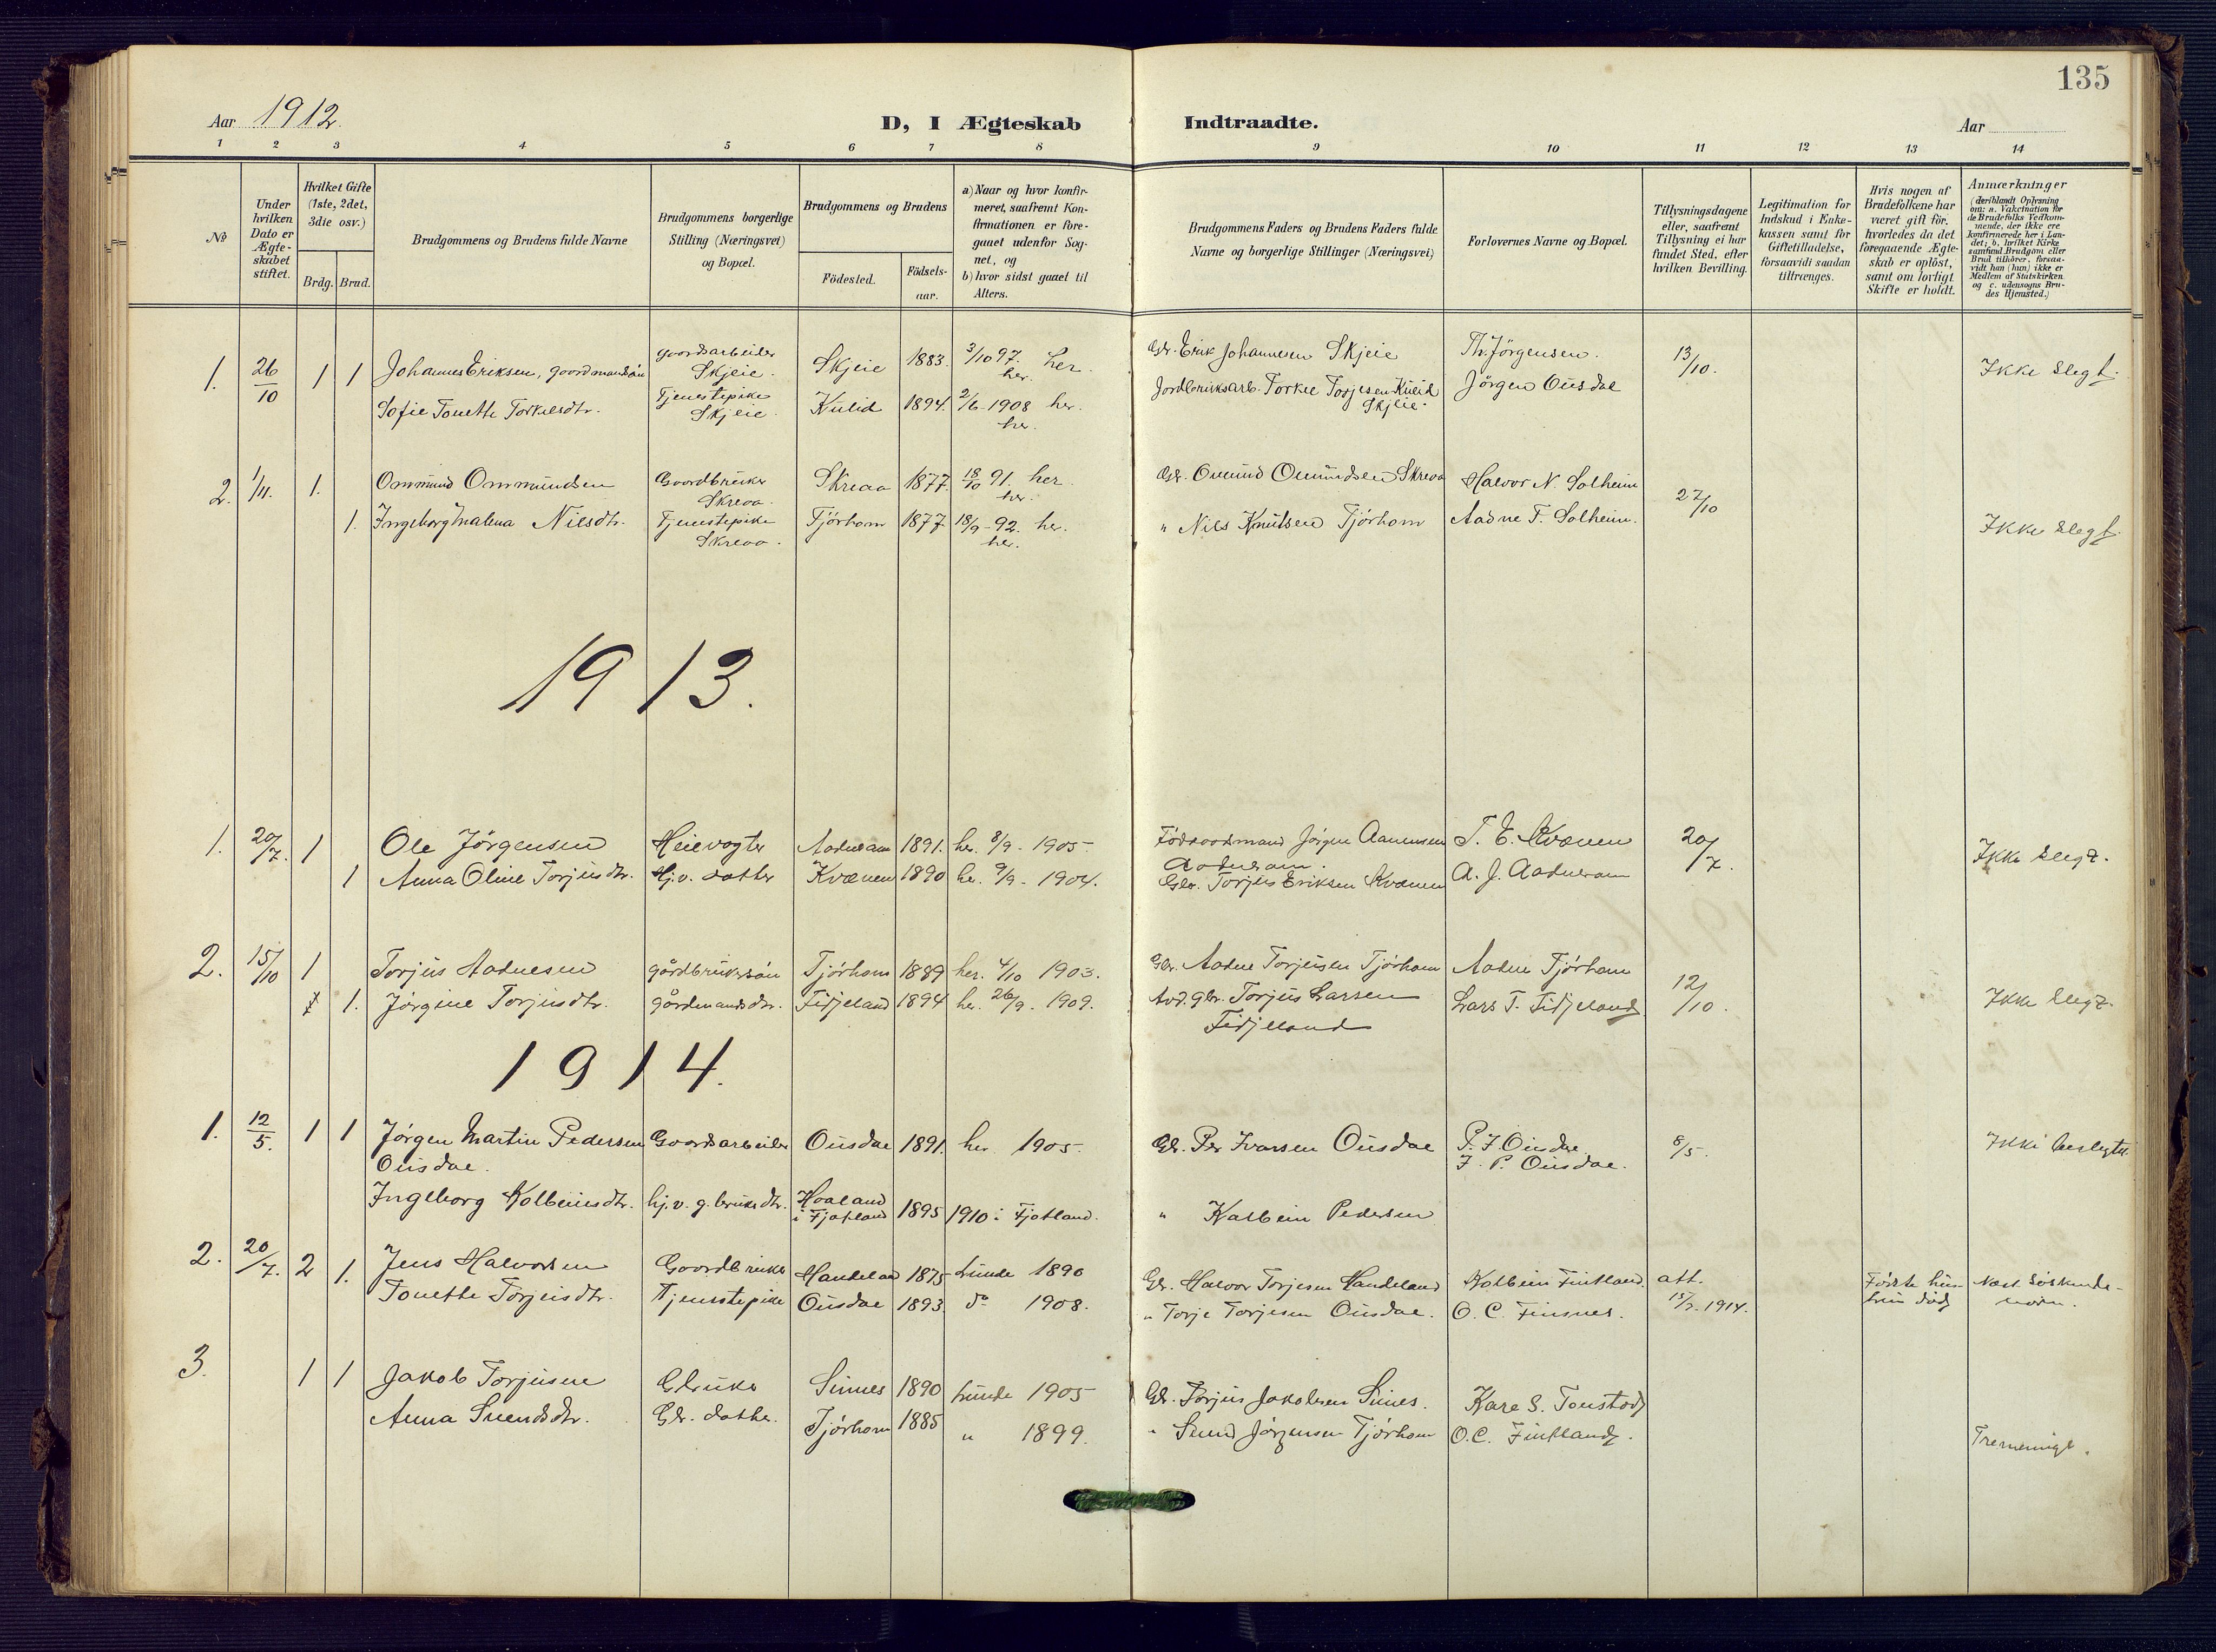 135
Aar 1912.
D, I Ægteskab Indtraadte.
Aar
1 2 3 4 5 6 7 8 9 10 11 12 13 14
No
Under hvilken Dato er Ægteskabet stiftet.
Hvilket Gifte (1ste, 2det, 3die osv.)
Brdg. Brud.
Brudgommens og Brudens fulde Navne
Brudgommens borgerlige Stilling (Næringsvei) og Bopæl.
Brudgommens og Brudens
Födested.
Födselsaar.
a) Naar og hvor konfirmeret, saafremt Konfirmationen er foregaaet udenfor Sognet, og
b) hvor sidst gaaet til Alters.
Brudgommens Faders og Brudens Faders fulde Navne og borgerlige Stillinger (Næringsvei)
Forlovernes Navne og Bopæl.
Tillysningsdagene eller, saafremt Tillysning ei har fundet Sted, efter hvilken Bevilling.
Legitimation for Indskud i Enkekassen samt for Giftetilladelse, forsaavidt saadan tiltrænges.
Hvis nogen af Brudefolkene har været gift för, hvorledes da det foregaaende Ægteskab er oplöst, samt om lovligt Skifte er holdt.
Anmærkninger
(deriblandt Oplysning om: a. Vakcination for de Brudefolks Vedkommende, der ikke ere konfirmerede her i Landet; b. hvilket Kirkesamfund Brudgom eller Brud tilhörer, forsaavidt han (hun) ikke er Medlem af Statskirken og c. udensogns Brudes Hjemsted.)
1. 26/10 1 1 Johannes Eriksen, gaardmandsön gaardsarbeider Skjeie. Skjeie 1883. 3/10 97. her. her. Gbr. Erik Johannesen Skjeie Th. Jörgensen. 13/10. Ikke slegt.
Sofie Tonette Torkelsdtr. Tjenestepike Skjeie. Kulid 1894. 2/6 1908 her. her. Jordbruksarb. Torkel Torjesen Kulid Skjeie. Jörgen Ousdal
2. 1/11. 1. Ommund Ommundsen Gaardbruker Skreaa. Skreaa 1877. 18/10 91. her. her. Gbr. Omund Omundsen Skreaa Halvor N. Solheim 27/10
1. Ingeborg Malena Nilsdtr. Tjenestepike Skreaa. Tjörhom 1877 18/9-92. her. her. " Nils Knutsen Tjörhom Aadne T. Solheim. Ikke slegt.
1913.
1. 20/7. 1 Ole Jörgensen Heievogter Aadneram 1891. her. 8/9 - 1905- Födraadsmand Jörgen Aanensen Aadneram. T. E. Kvænen 20/7. Ikke slegt.
1 Anna Oline Torjusdtr. Hj.v. datter Kvænen 1890 her. 9/9. - 1904. Gbr. Torjus Eriksen Kvænen A. J. Aadneram
2. 15/10 1 Torjus Aadnesen gårdbrukersön Tjörhom 1889 her. 4/10 1903. Gbr. Aadne Torjusen Tjörhom Aadne Tjörhom 12/10.
1. Jörgine Torjusdtr. gårdmandsdtr. Fidjeland 1894 her. 26/9. 1909. Avd. gbr. Torjus Larsen Fidjeland Lars T. Fidjeland Ikke slegt.
1914.
1. 12/5. 1 1 Jörgen Martin Pedersen Ousdal. Gaardsarbeider Ousdal 1891. her 1905. Gbr. Per Ivarsen Ousdal P. I. Ousdal 8/5. Ikke beslegtet
I. P. Ousdal.
Ingeborg Kolbeinsdtr. hj.v. g.brukerdtr. Haaland i Fjotland 1895 1910 i Fjotland. " Kolbein Pedersen
2. 20/7. 2 1. Jens Halvorsen Gaardbruker Handeland 1875 Lunde 1890 Gbr. Halvor Torjesen Handeland Kolbein Fintland. att. 15/7. 1914. Förste hustru död Næst söskende-
Tonette Torjusdtr. Tjenestepike Ousdal 1893. do 1908. " Torje Torjesen Ousdal. O. C. Finsnes.
3. 1 1 Jakob Torjusen Gbruker Sinnes 1890 Lunde 1905- Gbr. Torjus Jakobsen Sinnes. Kare S. Tonstad
Anna Svendsdtr. Gbr. datter. Tjörhom 1885 " 1899. " Svend Jörgensen Tjörhom O. C. Fintland. Tremenings.